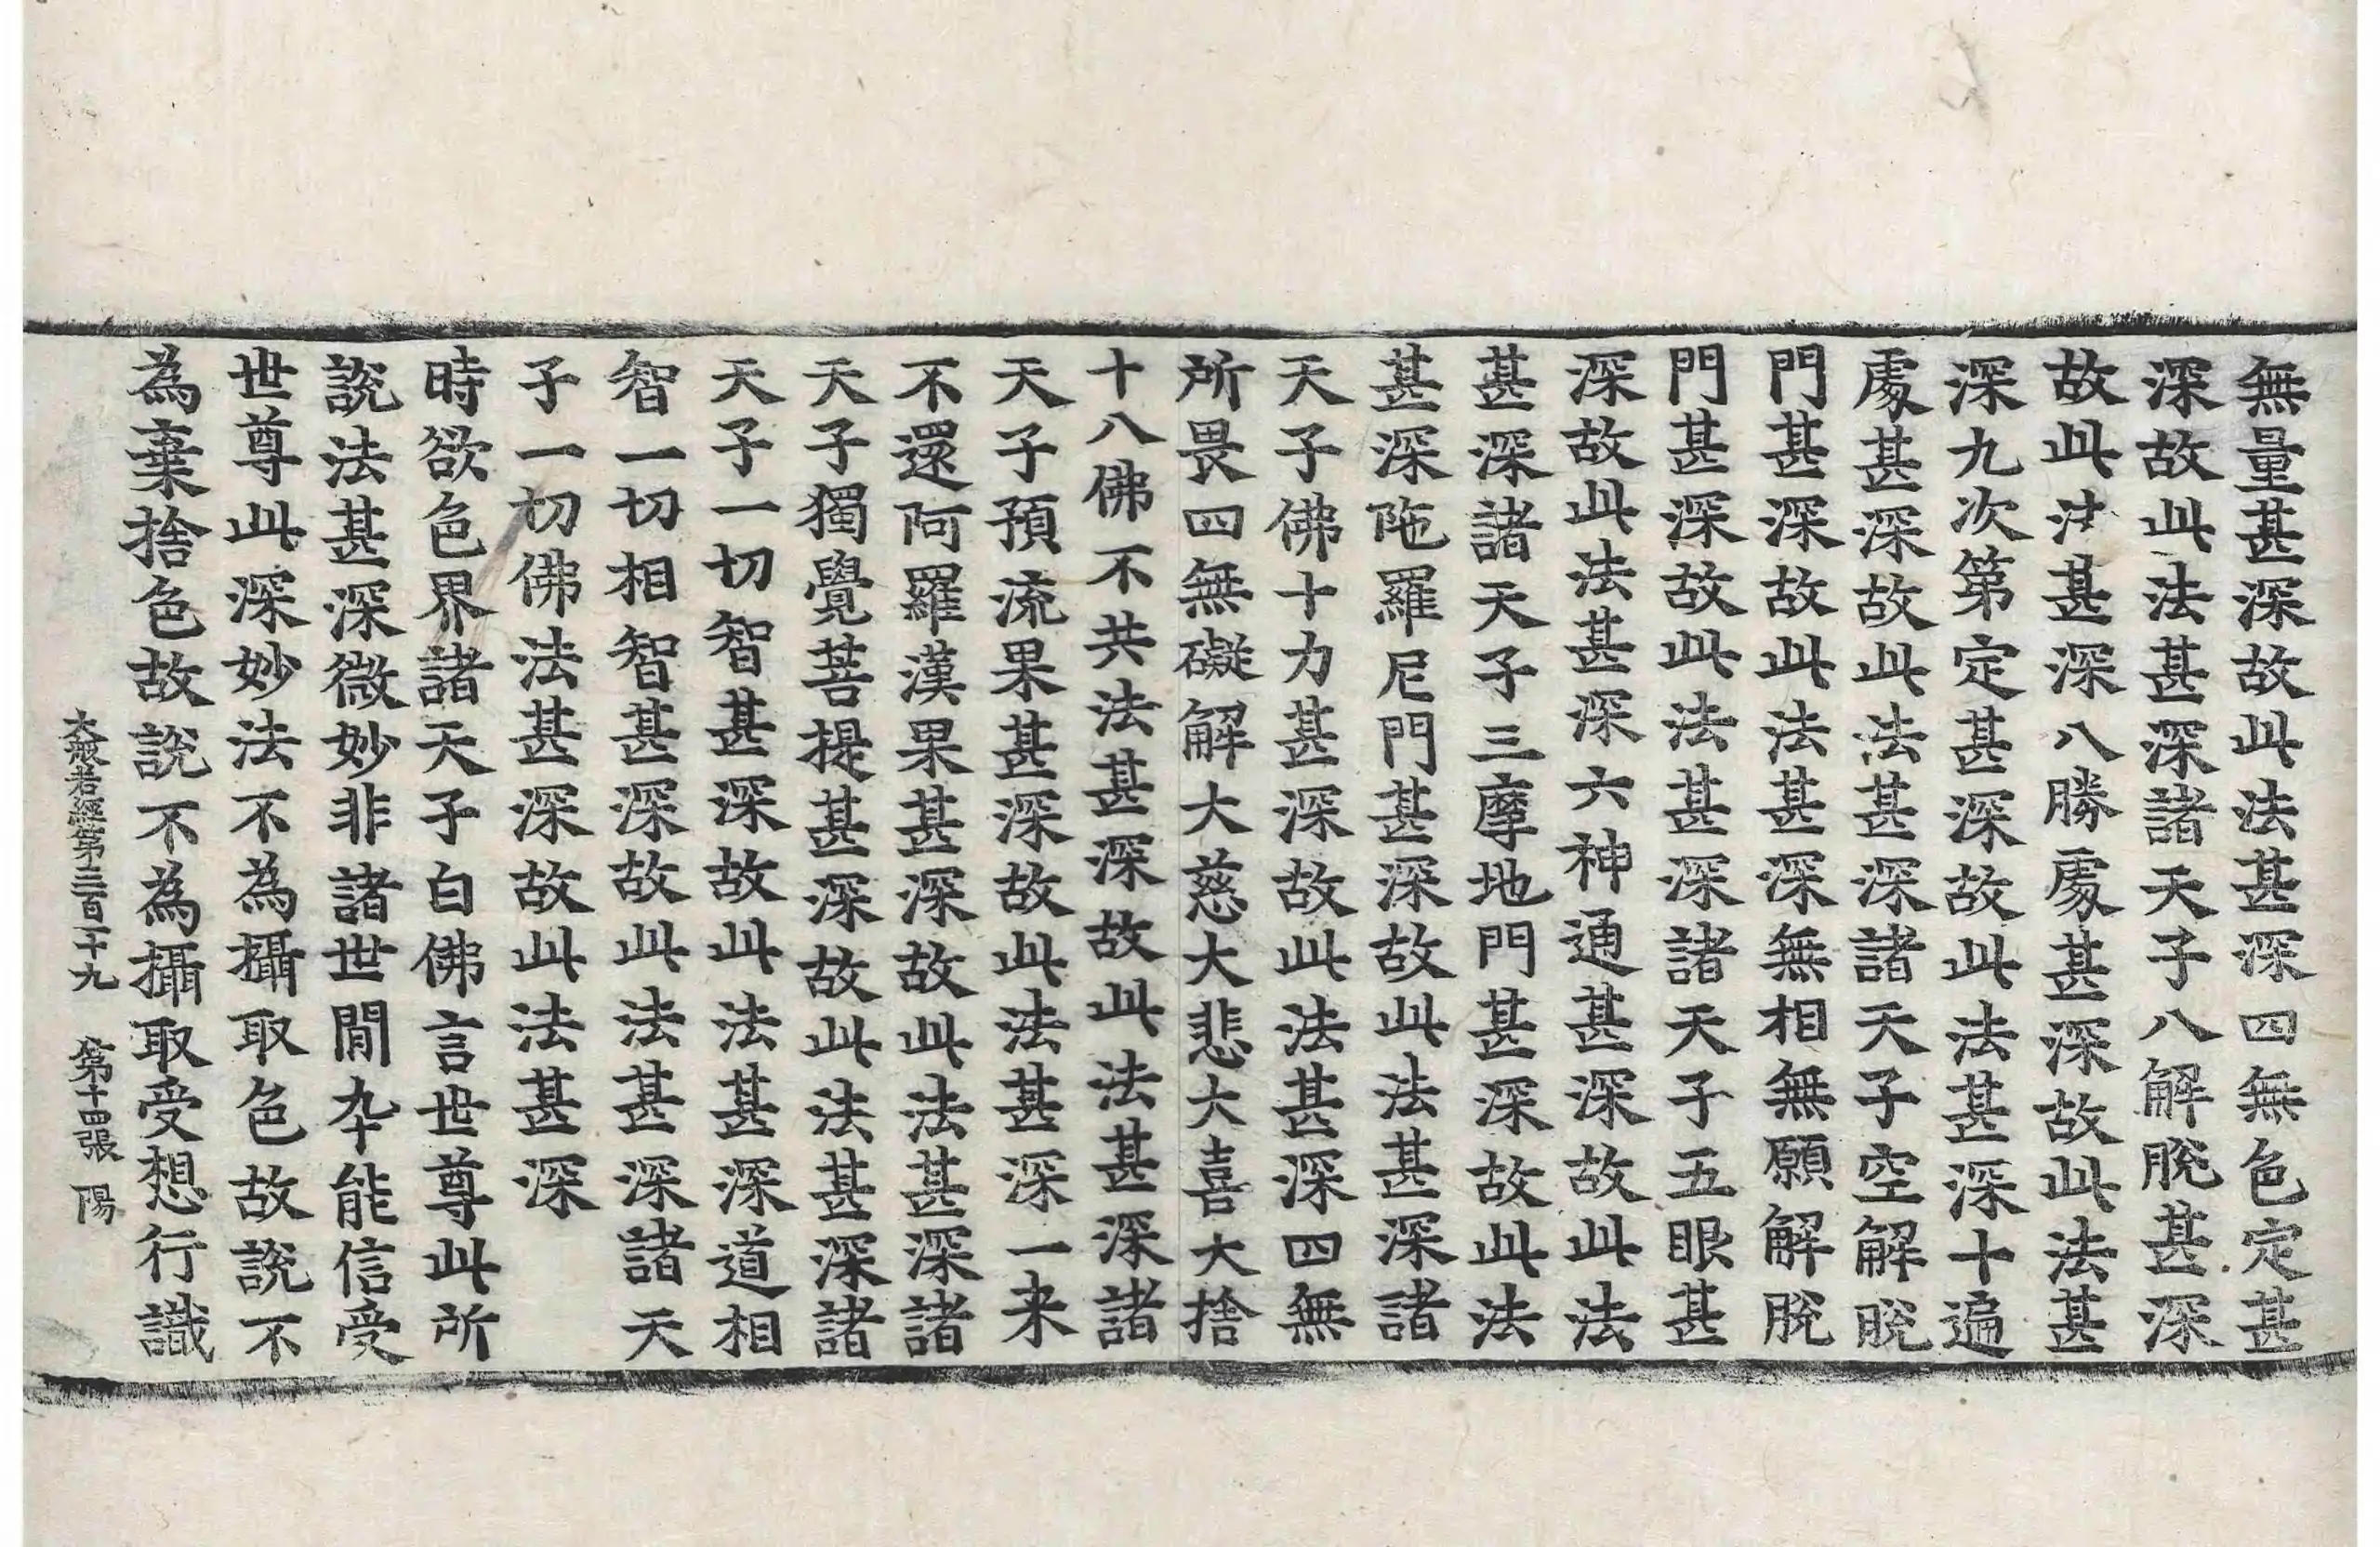 無量甚深故此法甚深四無色定甚
深故此法甚深諸天子八解脫甚深
故此法甚深八勝處甚深故此法甚
深九次第定甚深故此法甚深十遍
處甚深故此法甚深諸天子空解脫
門甚深故此法甚深無相無願解脫
門甚深故此法甚深諸天子五眼甚
深故此法甚深六神通甚深故此法
甚深諸天子三摩地門甚深故此法
甚深陁羅尼門甚深故此法甚深諸
天子佛十力甚深故此法甚深四無
所畏四無礙解大慈大悲大喜大捨
十八佛不共法甚深故此法甚深諸
天子預流果甚深故此法甚深一来
不還阿羅漢果甚深故此法甚深諸
天子獨覺菩提甚深故此法甚深諸
天子一切智甚深故此法甚深道相
智一切相智甚深故此法甚深諸天
子一切佛法甚深故此法甚深
時欲色界諸天子白佛言世尊此所
說法甚深微妙非諸世間卆能信受
世尊此深妙法不為攝取色故說不
為棄捨色故說不為攝取受想行識
大般若經第三百一十九 第十四張 陽